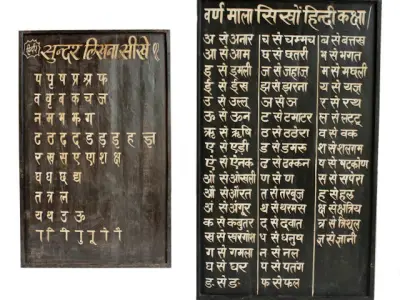 सुन्दर लिखना सीखें
प पृ ष प्र श्र फ
व वृ ब क च ज
न म भ झ ग
र ख स ए ण श क्ष
त त्र ल
य थ उ ऊ
वर्ण माला सिखों हिन्दी कक्षा।
अ से अनार
आ से आम
इ से इमली
ई से ईख
उ से उल्लू
ऊ से ऊन
ऋ से ऋषि
ए से एड़ी
ऐ से ऐनक
ओ से ओखली
औ से औरत
अं से अंगूर
क से कबुतर
ख से खरगोश
ग से गमला
घ से घर
ङ से ङ
च से चम्मच
छ से छतरी
ज से जहाज
झ से झरना
ञ से ञ
ट से टमाटर
ठ से ठठेरा
ड से डमरू
ढ से ढक्कन
ण से ण
त से तरबूज
थ से थरमस
द से दवात
ध से धनुष
न से नल
प से पतंग
फ से फल
ब से बतख
भ से भगत
म से मछली
य से यज्ञ
र से रथ
ल से लट्टू
व से वक
श से शलगम
ष से षट्कोण
स से सपेरा
ह से हल
क्ष से क्षत्रिय
त्र से त्रिशूल
ज्ञ से ज्ञानी